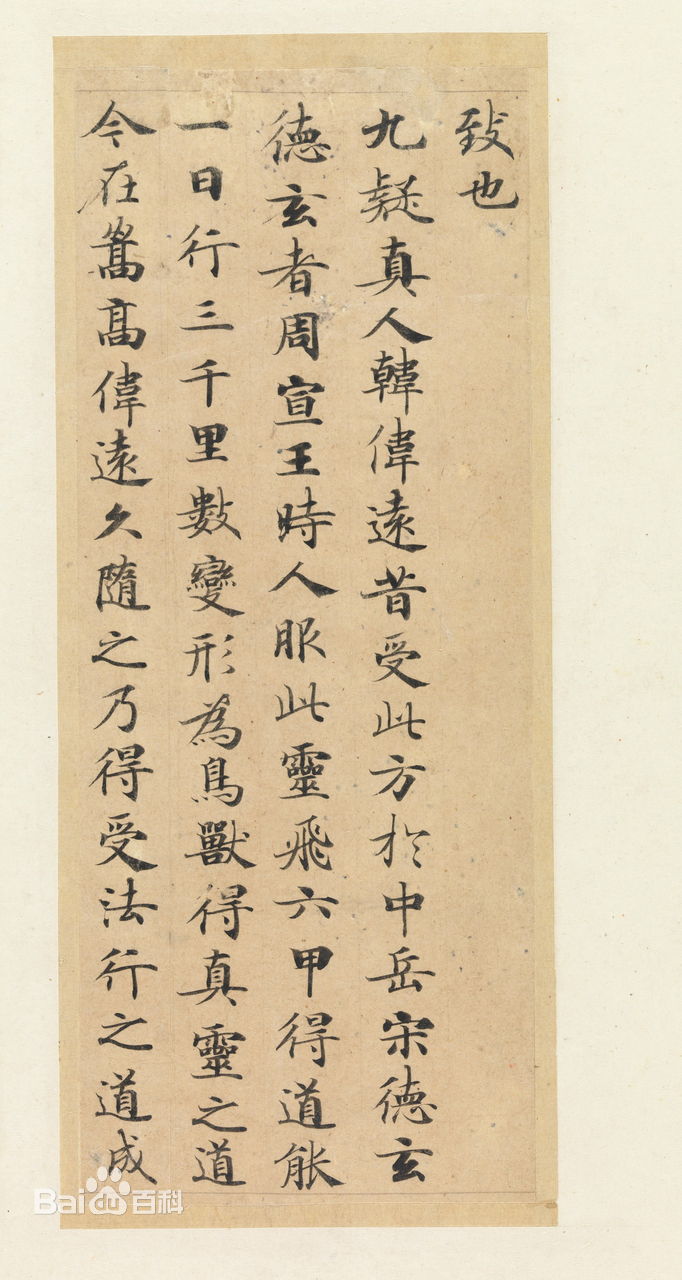 致也
九疑真人韓偉遠昔受此方於中岳宋德玄
德玄者周宣王時人服此靈飛六甲得道能
一日行三千里數變形為鳥獸得真靈之道
今在嵩高偉遠久隨之乃得受法行之道成
Baidu百科